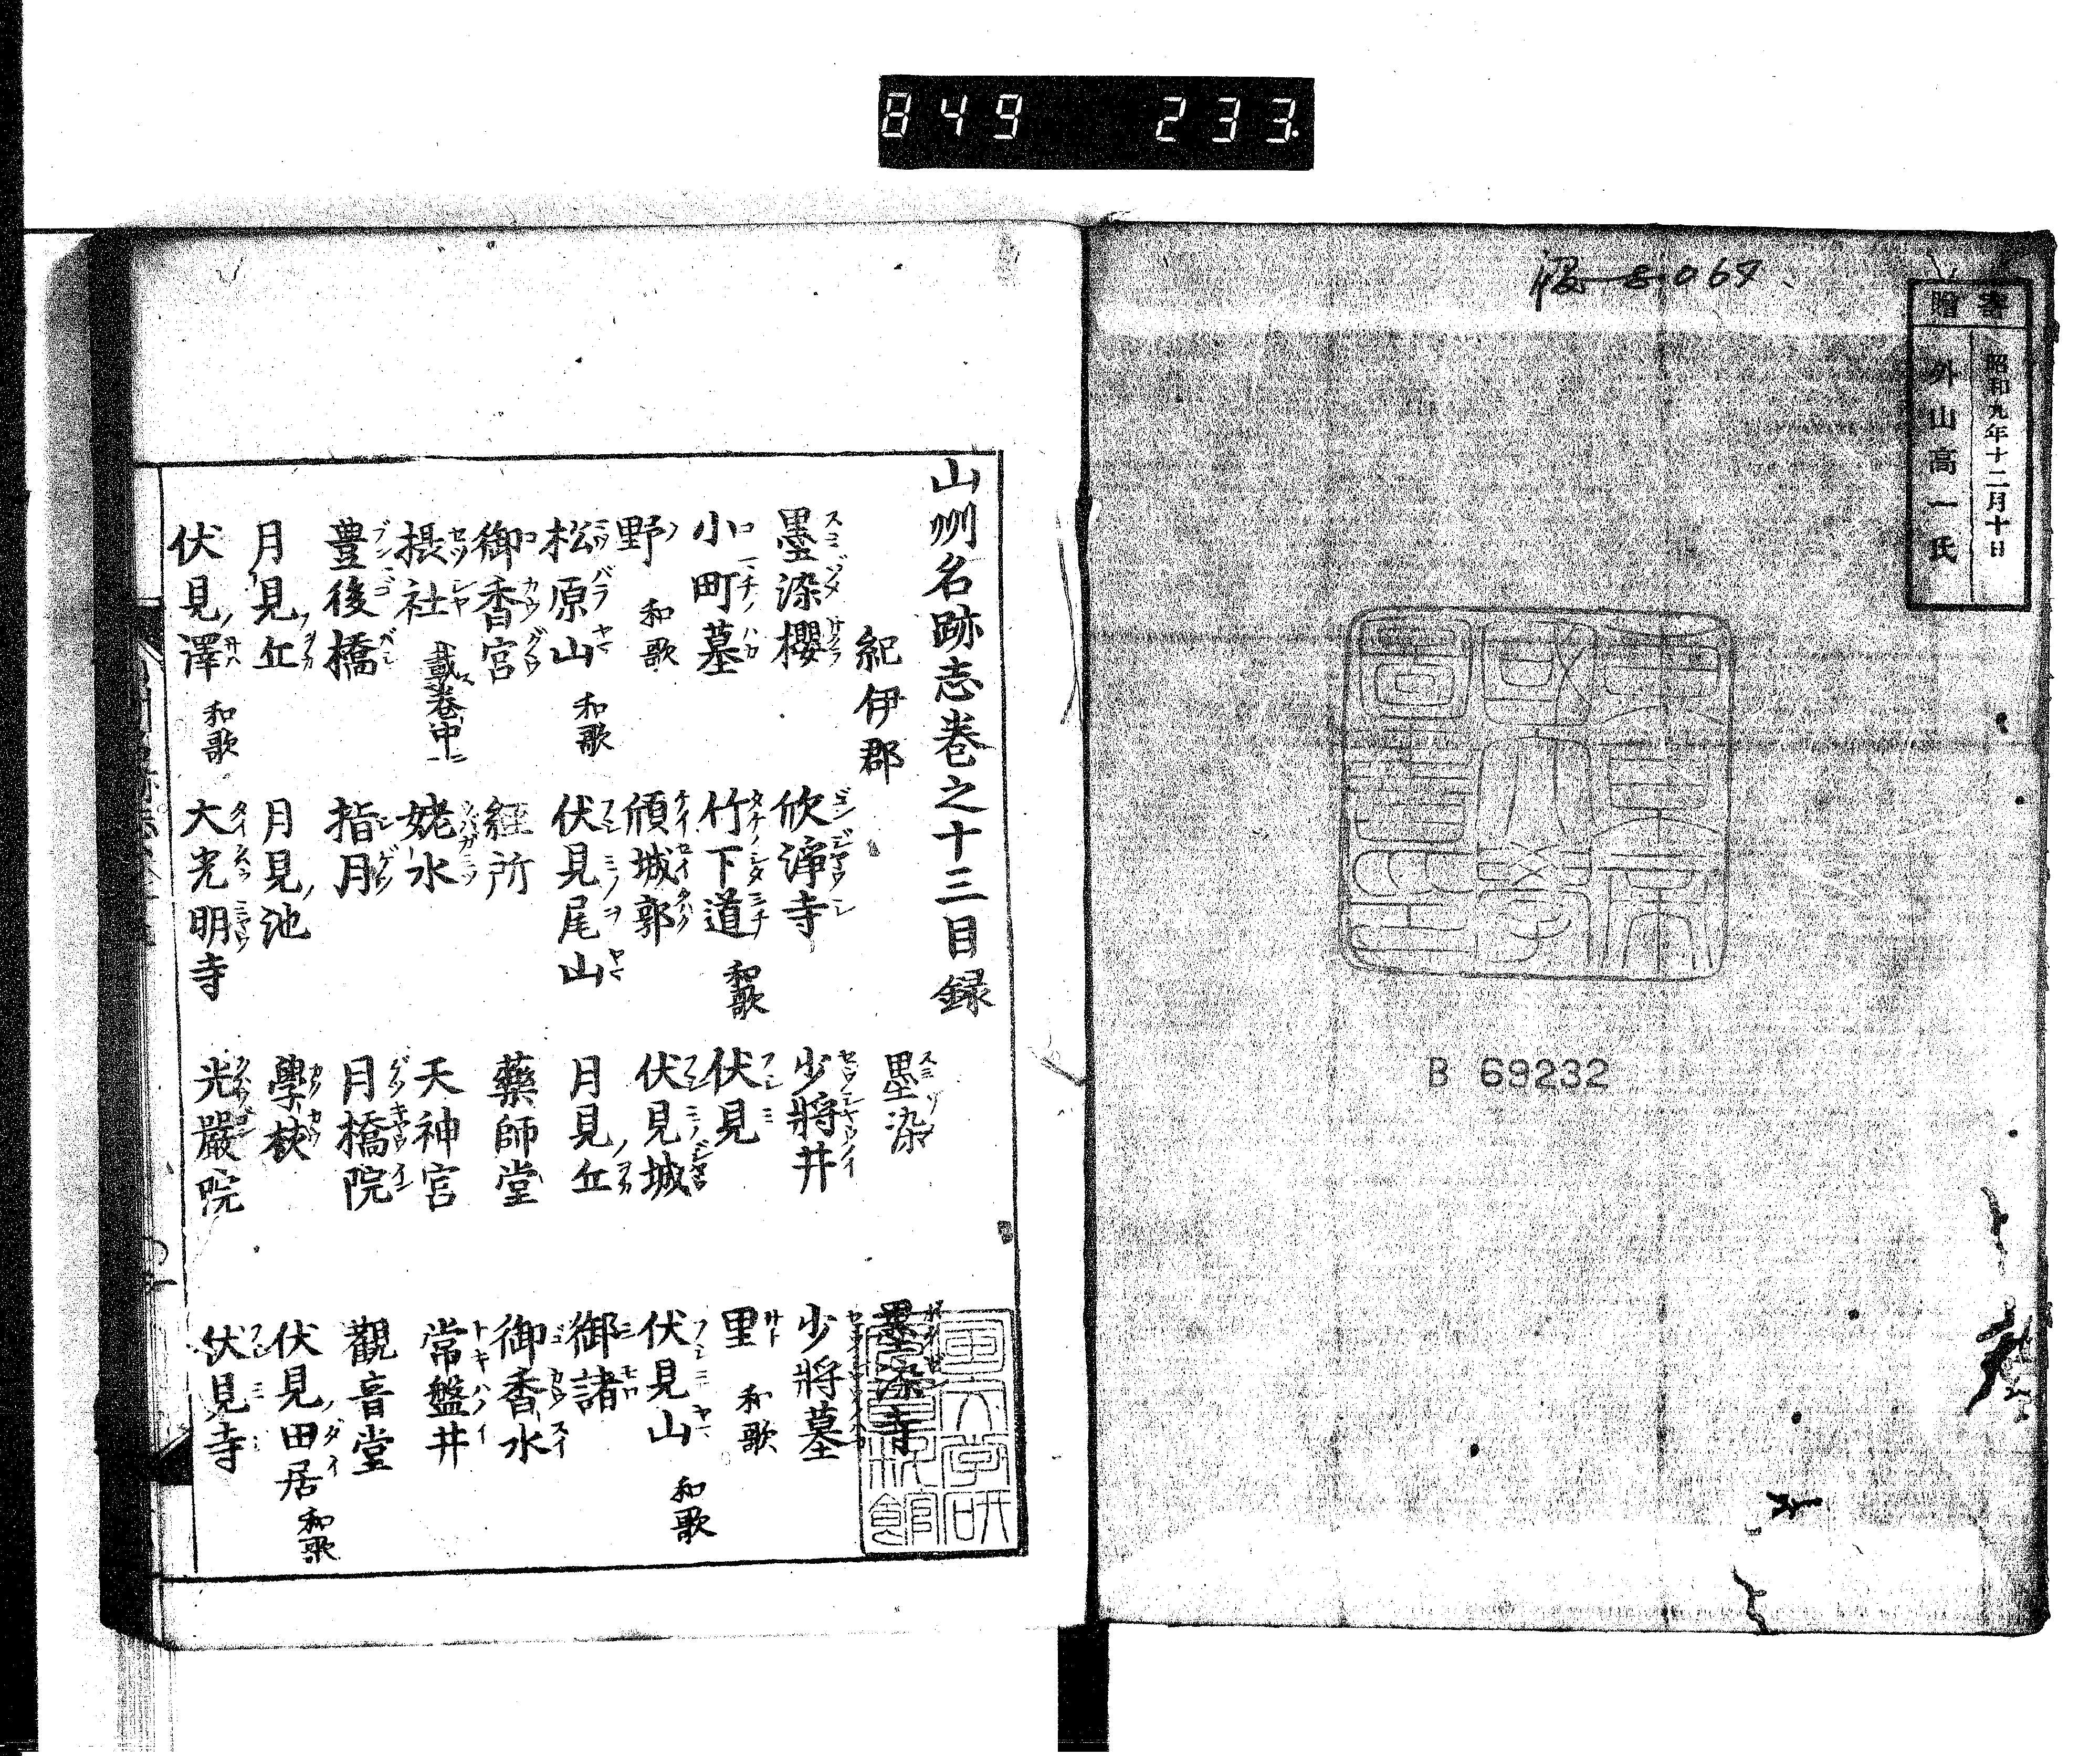 849 233
寄贈
昭和九年十二月十日
外山高一氏
B 69232
山州名跡志巻之十三目録
紀伊郡 墨染 墨染寺
墨染櫻 欣淨寺 少將井 少將墓
小町墓 竹下道 和歌 伏見 里 和歌
野 和歌 傾城郭 伏見城 伏見山 和歌
松原山 和歌 伏見尾山 月見丘 御諸
御香宮 経所 藥師堂 御香水
摂社 載巻中ニ 姥水 天神宮 常盤井
豊後橋 指月 月橋院 觀音堂
月見丘 月見池 學校 伏見田居 和歌
伏見澤 和歌 大光明寺 光嚴院 伏見寺